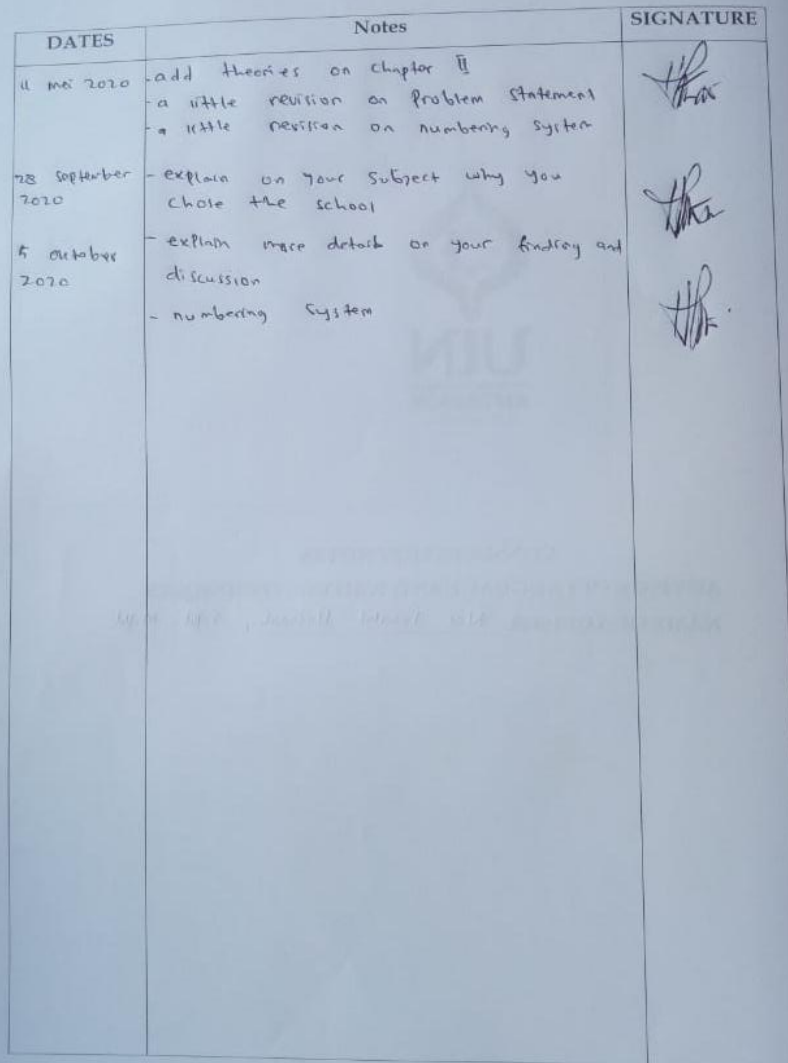 DATES Notes SIGNATURE
11 mei 2020 - add theories on Chapter II
- a little revision on Problem Statement
- a little revision on numbering system
28 September 2020 - explain on your Subject why you
chose the school
5 october 2020 - explain more details on your finding and
discussion
- numbering System
UIN